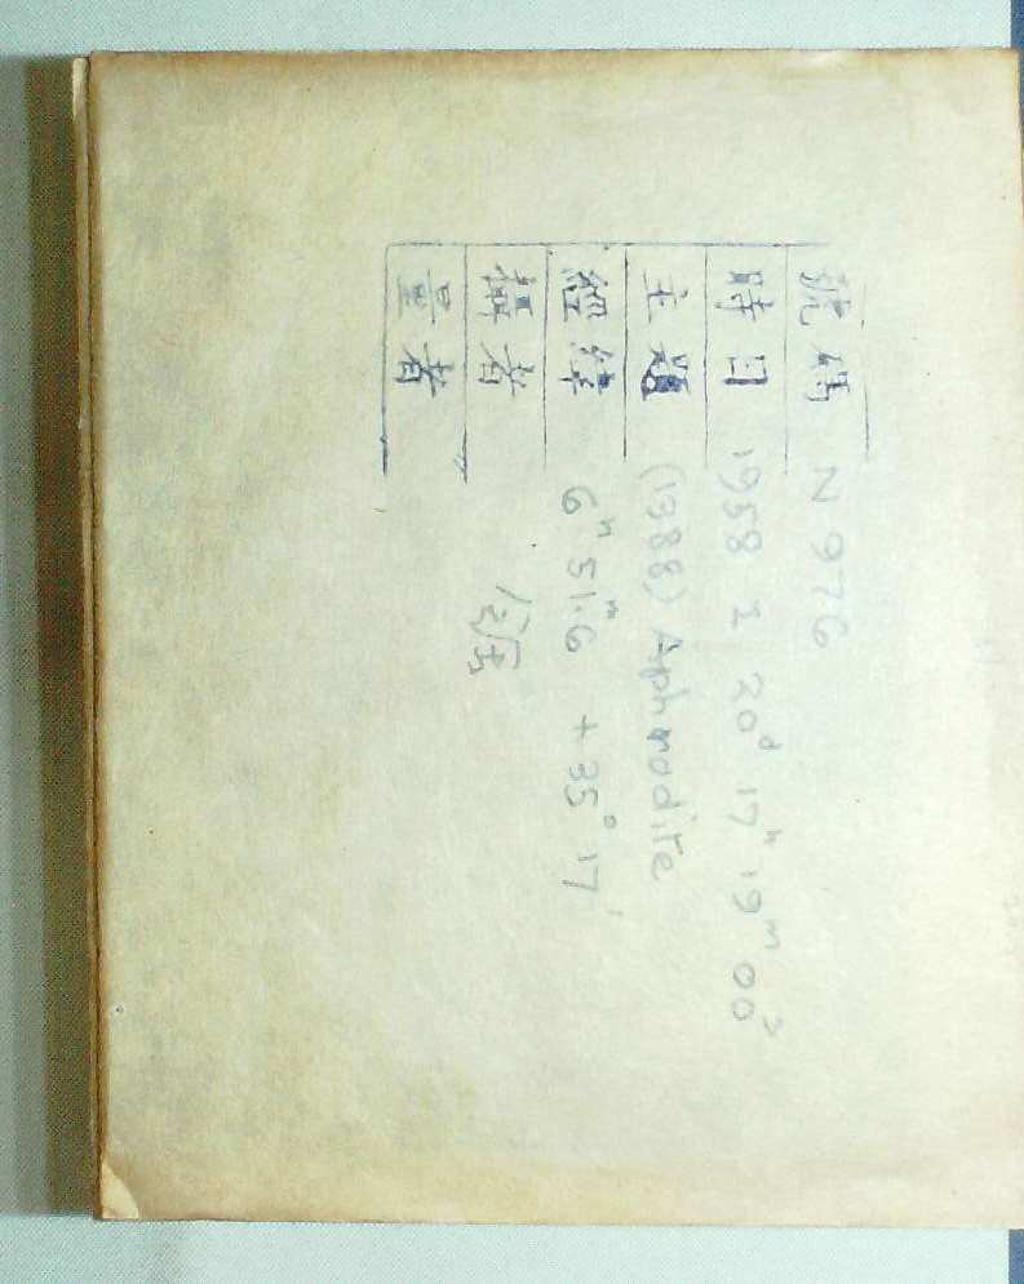 號碼 N 976
時日 1958 I 20ᵈ 17ʰ 19ᵐ 00ˢ
主題 (1388) Aphrodite
經緯 6ʰ 51ᵐ.6 +35° 17′
攝者
量者